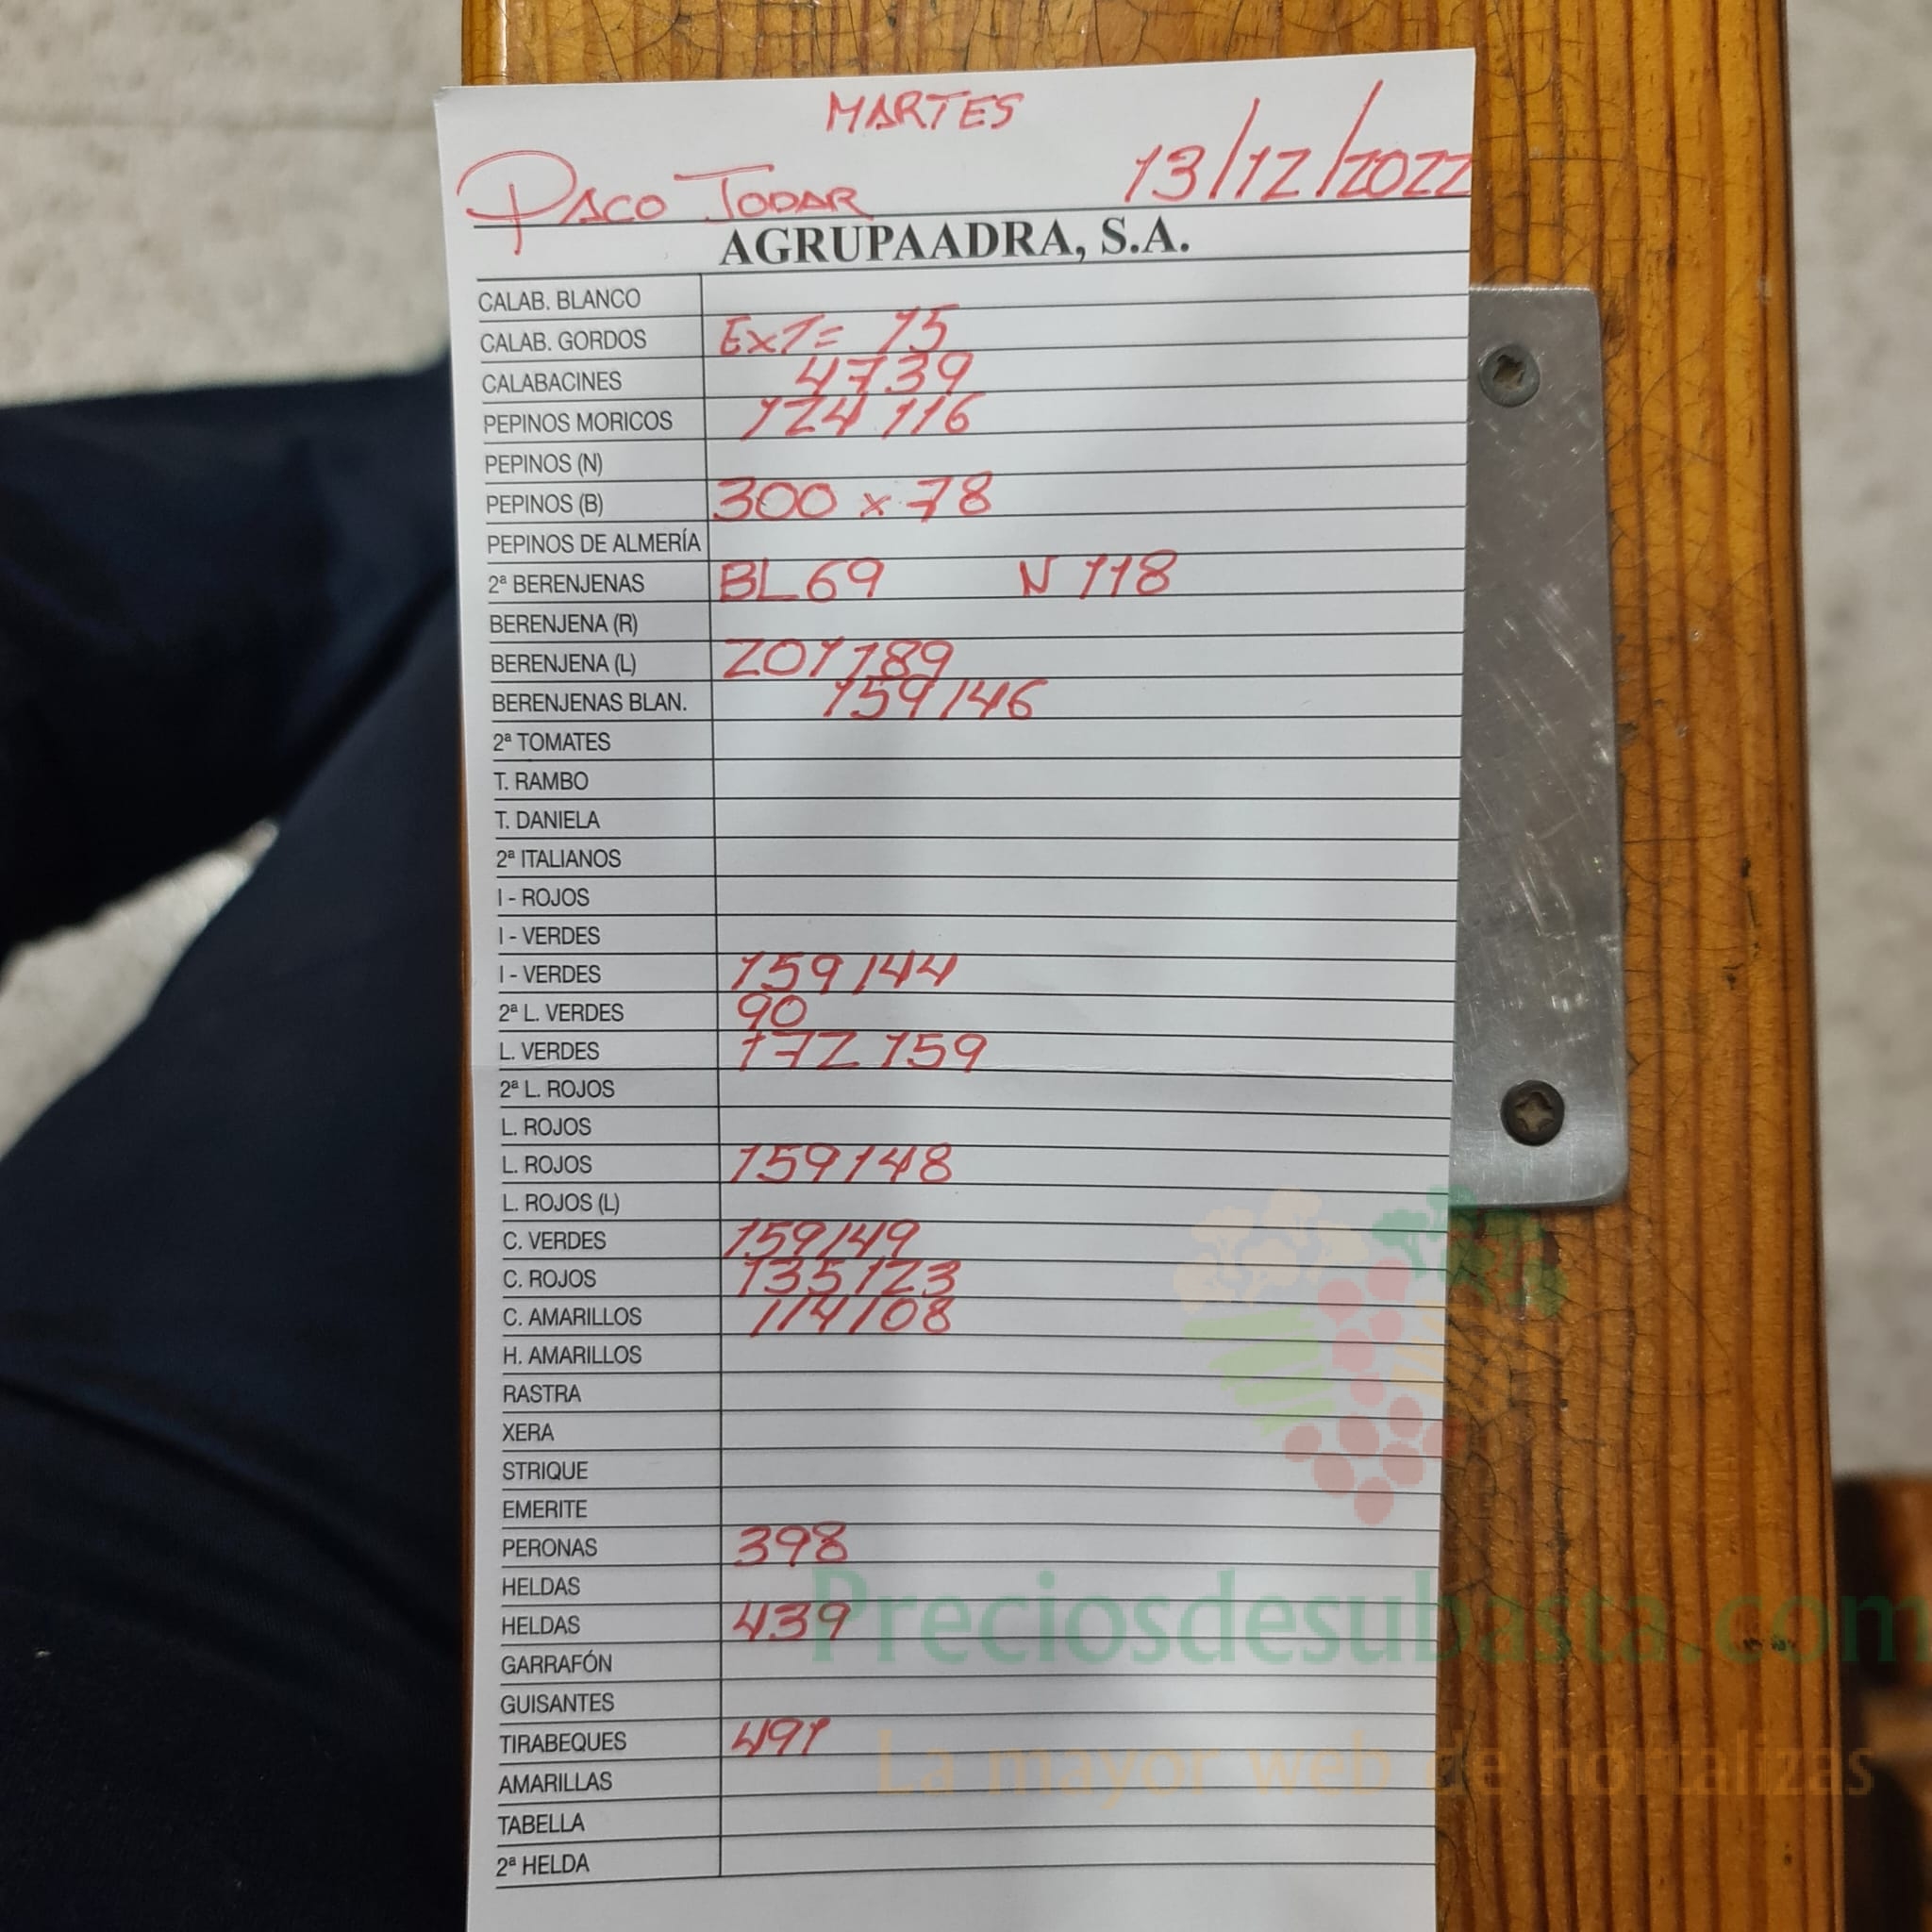 MARTES
PACO JODAR 13/12/2022
AGRUPAADRA, S.A.
CALAB. BLANCO
CALAB. GORDOS EXT= 15
CALABACINES 47 39
PEPINOS MORICOS 124 116
PEPINOS (N)
PEPINOS (B) 300 x 78
PEPINOS DE ALMERÍA
2ª BERENJENAS BL 69 N 118
BERENJENA (R)
BERENJENA (L) 201 189
BERENJENAS BLAN. 159 146
2ª TOMATES
T. RAMBO
T. DANIELA
2ª ITALIANOS
I - ROJOS
I - VERDES
I - VERDES 159 144
2ª L. VERDES 90
L. VERDES 172 159
2ª L. ROJOS
L. ROJOS
L. ROJOS 159 148
L. ROJOS (L)
C. VERDES 159 149
C. ROJOS 135 123
C. AMARILLOS 114 108
H. AMARILLOS
RASTRA
XERA
STRIQUE
EMERITE
PERONAS 398
HELDAS
HELDAS 439
GARRAFÓN
GUISANTES
TIRABEQUES 491
AMARILLAS
TABELLA
2ª HELDA
Preciosdesubasta.com
La mayor web de hortalizas